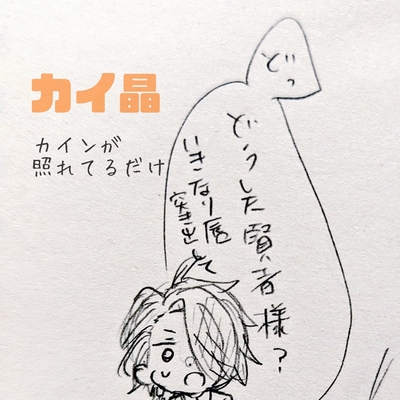 カイ晶
カインが
照れてるだけ
どっ
どうした賢者様？
いきなり唇
突き出して